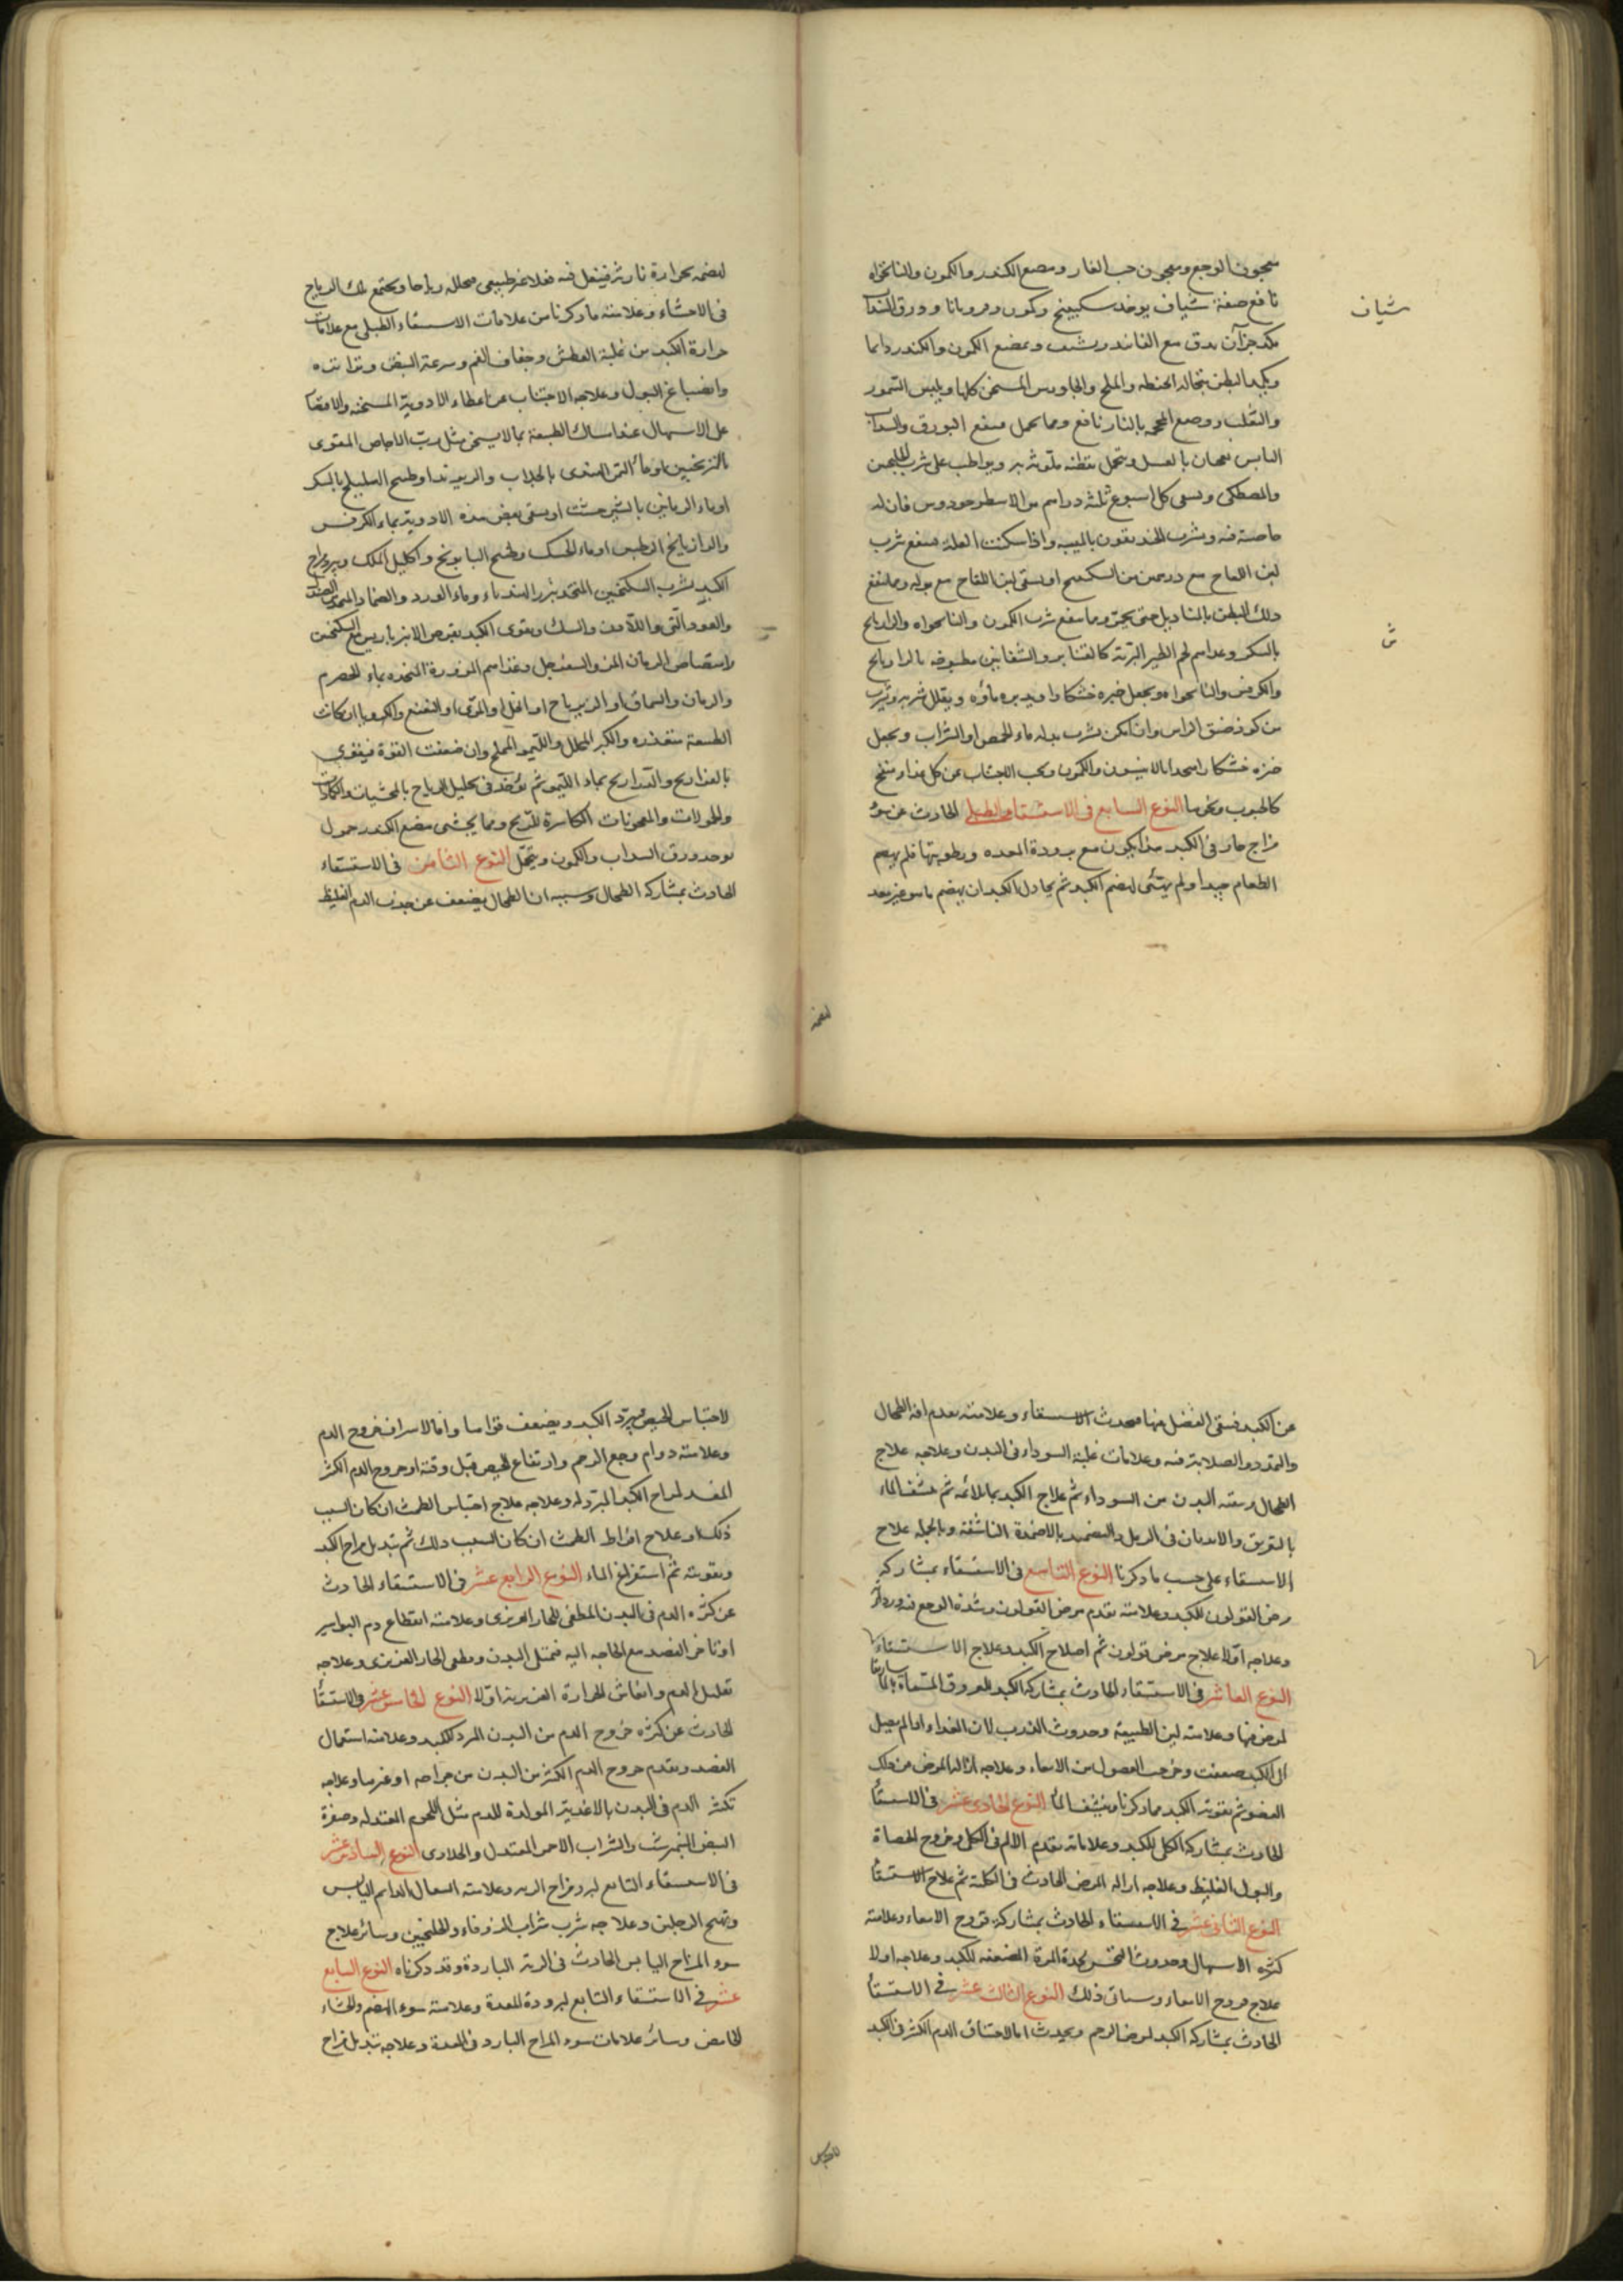 معجون الوجع ومعجون حب الغار ومضغ الكندر والكمون والنانخواه
نافع صفة شياف يوخذ سكبينج وكمون وورق السداب
شياف
من جزآن يدق مع الفانيد ويشيف ويمضغ الكمون والكندر دايما
ويكمد البطن بنخالة الحنطه والملح والجاورس المسخن كلها ويلبس السمور
والثعلب ووضع المحجمه بالنار نافع ومما يحمل فينفع البورق والسداب
اليابس يعجنان بالعسل ويتحمل بقطنه ملوثه به ويواظب على شرب
والمصطكى ويسقى كل اسبوع ثلثة دراهم من الاسطوخودوس فان له
خاصية فيه ويشرب الخنديقون بالميبه واذا سكنت العلة فينفع شرب
لبن اللقاح مع درهمين من السكبينج او يسقى لبن اللقاح مع بوله ومما ينفع
دلك البطن بالمناديل حتى يحمر ومما ينفع شرب الكمون والنانخواه والرازيانج
بالسكر وغذاءهم لحم الطير البرية كالقنابر والشفانين مطبوخه بالرازيانج
والكرفس والنانخواه ويجعل خبزه خشكارا ويدبره ماؤه ويقلل شربه ويشرب
من كوز ضيق الراس وان امكن يشرب بدله ماء الحمص او الشراب ويجعل
خبزه خشكارا معجونا بالانيسون والكمون ويجب الاجتناب عن كل غذاء منفخ
كالحبوب ونحوها النوع السابع فى الاستسقاء الطبلى الحادث عن سوء
مزاج حار فى الكبد هذا يكون مع برودة المعده ورطوبتها فلم يهضم
الطعام جيدا ولم يتهيّى لهضم الكبد ثم يحاول الكبد ان يهضم ما هو غير معد
لهضمه
لهضمه بحرارة نارية فيفعل فيه فعلا غير طبيعى محلله رياحا ويجتمع تلك الرياح
فى الاحشاء وعلامته ما ذكرنا من علامات الاستسقاء الطبلى مع علامات
حرارة الكبد من غلبة العطش وجفاف الفم وسرعة النبض وتواتره
وانصباغ البول وعلاجه الاجتناب عن اعطاء الادوية المسخنه والاقتصار
على الاسهال عند امساك الطبيعة بما لا يسخن مثل ربّ الاجاص المقوى
بالترنجبين او ماء التمر الهندى بالجلاب والريوند او طبيخ الهليلج بالسكر
او ماء الرمانين بالشيرخشت او يسقى بعض هذه الادوية بماء الكرفس
والرازيانج الرطب او ماء الحسك وطبيخ البابونج واكليل الملك ويبرد مزاج
الكبد بشرب السكنجبين المتخذ ببزر الهندباء وماء الورد والضماد المتخذ من الصندل
والعود النّى واللاذن والسك ويقوى الكبد بقرص الانبرباريس مع السكنجبين
وامتصاص الرمان المز والسفرجل وغذاءهم المزورة المتخذه بماء الحصرم
والرمان والسماق او الزيرباج او الخل او المرّى والنعنع والكرويا ان كانت
الطبيعة منعقده والكبر المخلل والليمو المملح وان ضعفت القوة فيقوى
بالفراريج والدراريج بماء الليمو ثم يؤخذ فى تحليل الرياح بالمجشيات والكمادات
والحمولات والمعجونات الكاسرة للريح ومما يجشى مضغ الكندر حمول
يوخذ ورق السداب والكمون ويتحمل النوع الثامن فى الاستسقاء
الحادث بمشاركة الطحال وسببه ان الطحال يضعف عن جذب الدم الغليظ
عن الكبد فيبقى الفضل فيها فيحدث الاستسقاء وعلامته تقدم افة الطحال
والتمدد والصلابة فيه وعلامات غلبة السوداء فى البدن وعلاجه علاج
الطحال وتنقية البدن من السوداء ثم علاج الكبد بما يلائمه ثم نشف الماء
بالتعريق والاندفان فى الرمل والتضميد بالاضمدة الناشفة وبالجمله علاج
الاستسقاء على حسب ما ذكرنا النوع التاسع فى الاستسقاء بمشاركة
مرض القولون للكبد وعلامته تقدم مرض القولون وشدة الوجع فيه
وعلاجه اوّلا علاج مرض قولون ثم اصلاح الكبد وعلاج الاستسقاء
النوع العاشر فى الاستسقاء الحادث بمشاركة الكبد للعروق المسماة بالماساريقا
لمرض فيها وعلامته لين الطبيعة وحدوث الذرب لان الغذاء اذا لم يصل
الى الكبد ضعفت وخرجت الفضول من الامعاء وعلاجه ازالة المرض من تلك
العضو ثم تقوية الكبد مما ذكرنا وينشف الماء النوع الحادى عشر فى الاستسقاء
الحادث بمشاركة الكلى للكبد وعلاماته تقدم الالم فى الكلى وخروج الحصاة
والبول الغليظ وعلاجه ازالة المرض الحادث فى الكلية ثم علاج الاستسقاء
النوع الثانى عشر فى الاستسقاء الحادث بمشاركة قروح الامعاء وعلامته
كثرة الاسهال وحدوث لحدة المرة المضعفه للكبد وعلاجه اولا
علاج قروح الامعاء وسياتى ذلك النوع الثالث عشر فى الاستسقاء
الحادث بمشاركة الكبد لمرض الرحم ويحدث اما لاحتقان الدم الكثير فى الكبد
لاحتباس
لاحتباس الحيض فيبرّد الكبد ويضعف قواها واما لاسراف خروج الدم
وعلامته دوام وجع الرحم وارتفاع الحيض قبل وقته او خروج الدم الكثير
المفسد لمزاج الكبد المبرد له وعلاجه علاج احتباس الطمث ان كان السبب
ذلك او علاج افراط الطمث ان كان السبب ذلك ثم تبديل مزاج الكبد
وتقويته ثم استفراغ الماء النوع الرابع عشر فى الاستسقاء الحادث
عن كثرة الدم فى البدن المطفى للحار الغريزى وعلامته انقطاع دم البواسير
او تاخر الفصد مع الحاجه اليه فيمتلى البدن ويطفى الحار الغريزى وعلاجه
تقليل الدم وانعاش الحرارة الغريزية اوّلا النوع الخامس عشر فى الاستسقاء
الحادث عن كثرة خروج الدم من البدن المبرد للكبد وعلامته استعمال
الفصد وتقدم خروج الدم الكثير من البدن من جراحه او غيرها وعلاجه
تكثير الدم فى البدن بالاغذية المولدة للدم مثل اللحوم المعتدله وصفرة
البيض النيمرشت والشراب الاحمر المعتدل والحلاوى النوع السادس عشر
فى الاستسقاء التابع لبرد مزاج الريه وعلامته السعال الدايم اليابس
وتهيج الرجلين وعلاجه شرب شراب الزوفاء والجلنجبين وسائر علاج
سوء المزاج اليابس الحادث فى الرية الباردة وقد ذكرناه النوع السابع
عشر فى الاستسقاء التابع لبرودة المعدة وعلامته سوء الهضم والجشاء
الحامض وسائر علامات سوء المزاج البارد فى المعدة وعلاجه تبديل مزاج